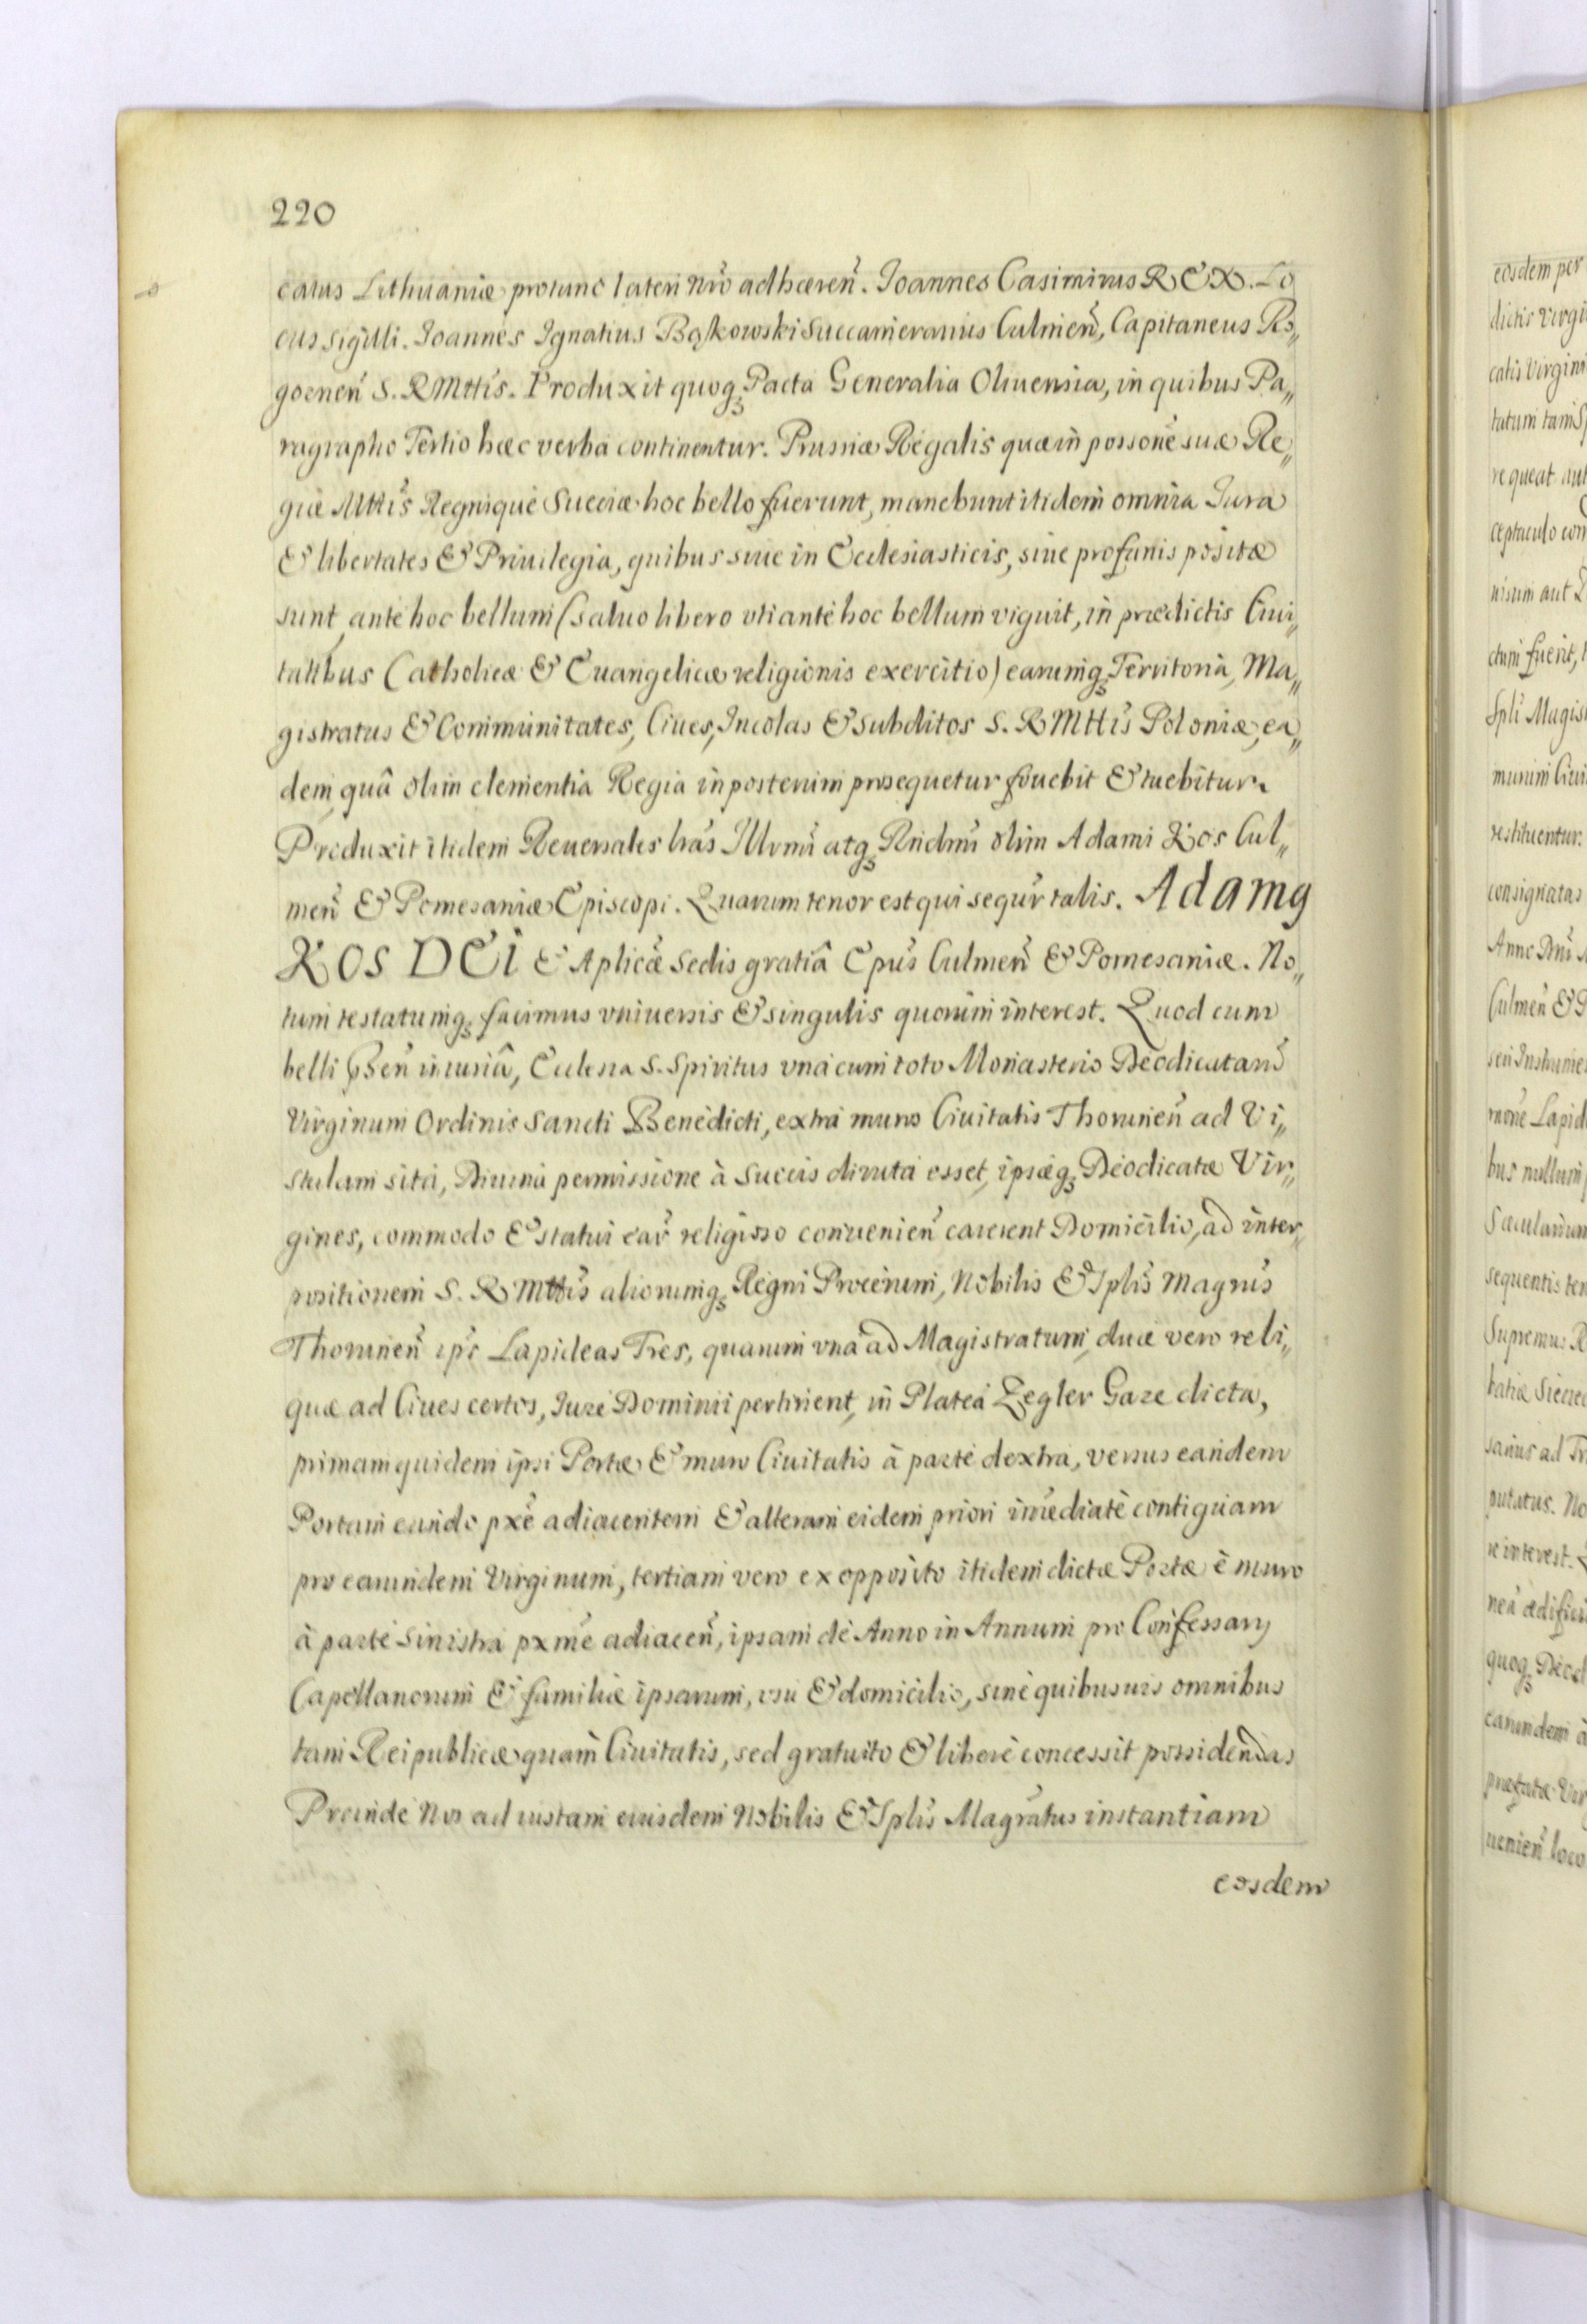 220
catus Lithuaniæ protunc lateri nrô adhæreñ. Joannes Casimirus REX. Lo
cus sigilli. Joannes Ignatius Bąkowski Succamerarius Culmeñ, Capitaneus Ro„
goznen̄ S. R Mttis. Produxit quoq₃ Pacta Generalia Oliuensia, in quibus Pa„
ragrapho Tertio hæc verba continentur. Prussiæ Regalis quæ in possonē suæ Re„
giæ Mttis Regnique Sueciæ hoc bello fuerunt, manebunt itidem omnia Jura
& libertates & Priuilegia, quibus siue in Ecclesiasticis, siue profanis positæ
sunt, ante hoc bellum (saluo libero vti ante hoc bellum viguit, in prædictis Ciui„
tatibus Catholicæ & Euangelicæ religionis exercitio) earumq₃ Territoria, Ma„
gistratus & Communitates, Ciues, Incolas & subditos S. R Mttis Poloniæ, ea„
dem, quâ olim clementia Regia in posterum prosequetur fouebit & tuebitur.
Produxit itidem Reuersales lrãs Illrmi atq₃ Rndmi olim Adami Kos Cul„
meñ & Pomesaniæ Episcopi. Quarum tenor est qui sequr̄ talis. Adamg
KOS DEI & Aplicæ Sedis gratiâ Epūs Culmeñ & Pomesaniæ. No„
tum testatumq₃ facimus vniuersis & singulis quorum interest. Quod cum
belli pseñ iniuriâ, Ecclesia S. Spiritus vna cum toto Monasterio Deodicatarū
Virginum Ordinis Sancti Benedicti, extra muros Ciuitatis Thoruneñ ad Vi„
stulam sita, Diuina permissione à Suecis diruta esset, ipsæq₃ Deodicatæ Vir„
gines, commodo & statui ear̄ religioso conuenieñ carerent Domicilio, ad inter„
positionem S. R Mttis aliorumq₃ Regni Procerum, Nobilis & Splis Magrus
Thoruneñ ips Lapideas Tres, quarum vna ad Magistratum, duæ vero reli„
quæ ad Ciues certos, Jure Dominii pertinent, in Platea Zegler Gaze dicta,
primam quidem ipsi Portæ & muro Ciuitatis à parte dextra, versus eandem
Portam eundo pxē adiacentem & alteram eidem priori imediatè contiguam
pro earundem Virginum, tertiam vero ex opposito itidem dictæ Portæ è muro
à parte sinistra pxmē adiaceñ, ipsam de Anno in Annum pro Confessarij
Capellanorum & familiæ ipsarum, vsu & domicilio, sine quibusuis omnibus
tam Reipublicæ quam Ciuitatis, sed gratuito & libere concessit possidendas
Proinde Nos ad iustam eiusdem Nobilis & Splis Magratus instantiam
eosdem